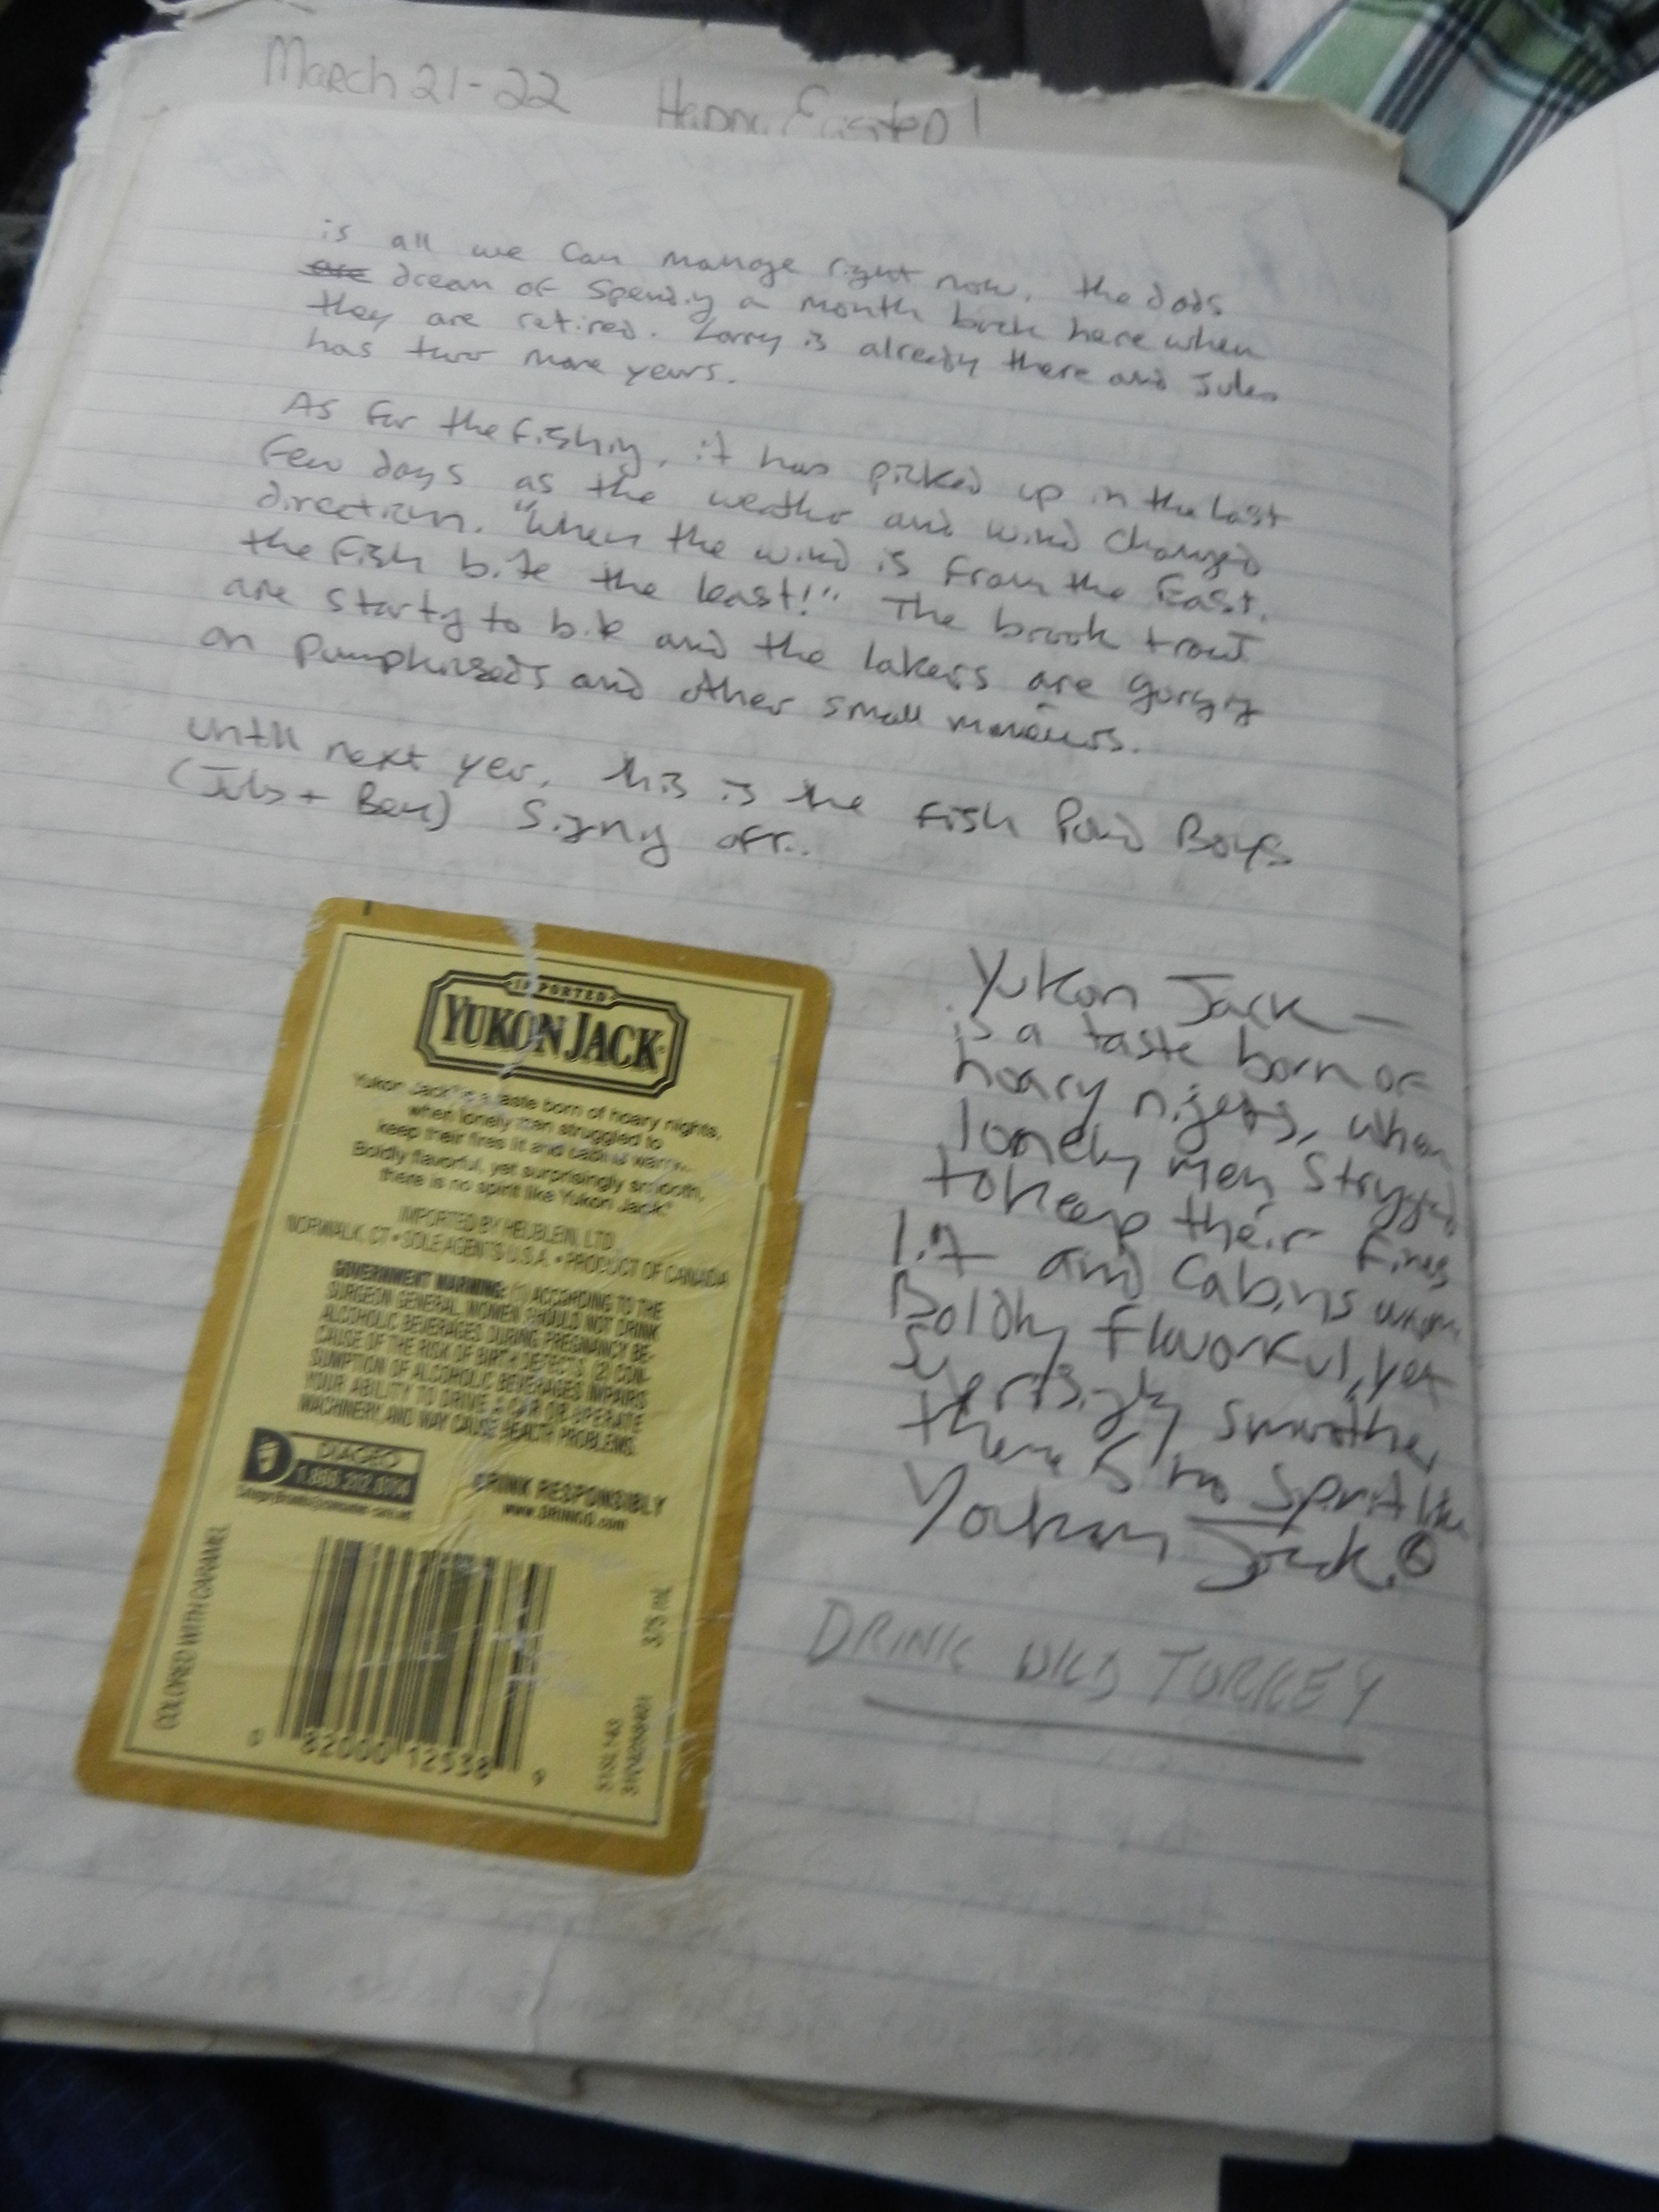 March 21-22 Happy Easter!
is all we can manage right now. the dads
are dream of spending a month back here when
they are retired. Larry is already there and Jules
has two more years.
As for the fishing, it has picked up in the last
few days as the weather and wind changed
direction. "When the wind is from the East,
the fish bite the least!" The brook trout
are starting to bite and the lakers are gorging
on pumpkinseeds and other small
Until next year, this is the Fish Pond Boys
(Jules + Ben) signing off..
IMPORTED
YUKON JACK
Yukon Jack® is a taste born of hoary nights,
when lonely men struggled to
keep their fires lit and cabins warm.
Boldly flavorful, yet surprisingly smooth,
there is no spirit like Yukon Jack.®
IMPORTED BY HEUBLEIN, LTD.
NORWALK, CT • SOLE AGENTS U.S.A. • PRODUCT OF CANADA
GOVERNMENT WARNING: (1) ACCORDING TO THE
SURGEON GENERAL, WOMEN SHOULD NOT DRINK
ALCOHOLIC BEVERAGES DURING PREGNANCY BE-
CAUSE OF THE RISK OF BIRTH DEFECTS. (2) CON-
SUMPTION OF ALCOHOLIC BEVERAGES IMPAIRS
YOUR ABILITY TO DRIVE A CAR OR OPERATE
MACHINERY, AND MAY CAUSE HEALTH PROBLEMS.
DIAGEO
DRINK RESPONSIBLY
COLORED WITH CARAMEL
375 mL
0 82000 12538 9
Yukon Jack —
is a taste born of
hoary nights, when
lonely men struggled
to keep their fires
lit and cabins warm
Boldly flavorful, yet
surprisingly smoothe,
there is no spirit like
Yorkon Jack.®
DRINK WILD TURKEY